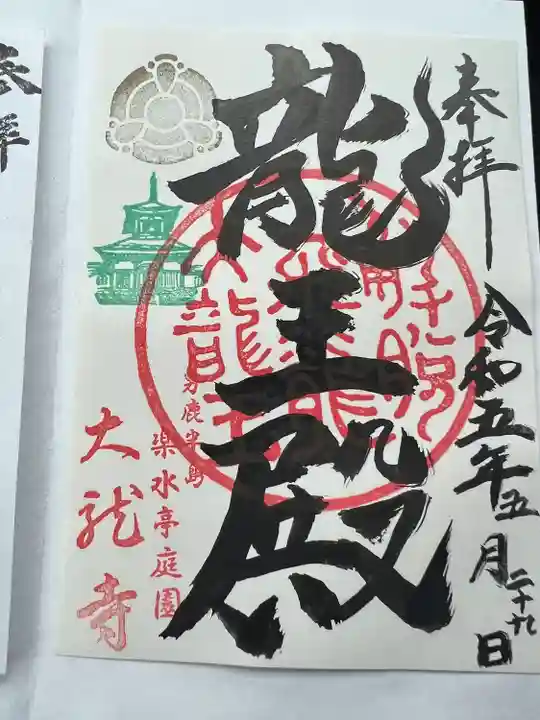 奉拝
令和五年五月二十九日
龍王殿
男鹿半島
楽水亭庭園
大龍寺